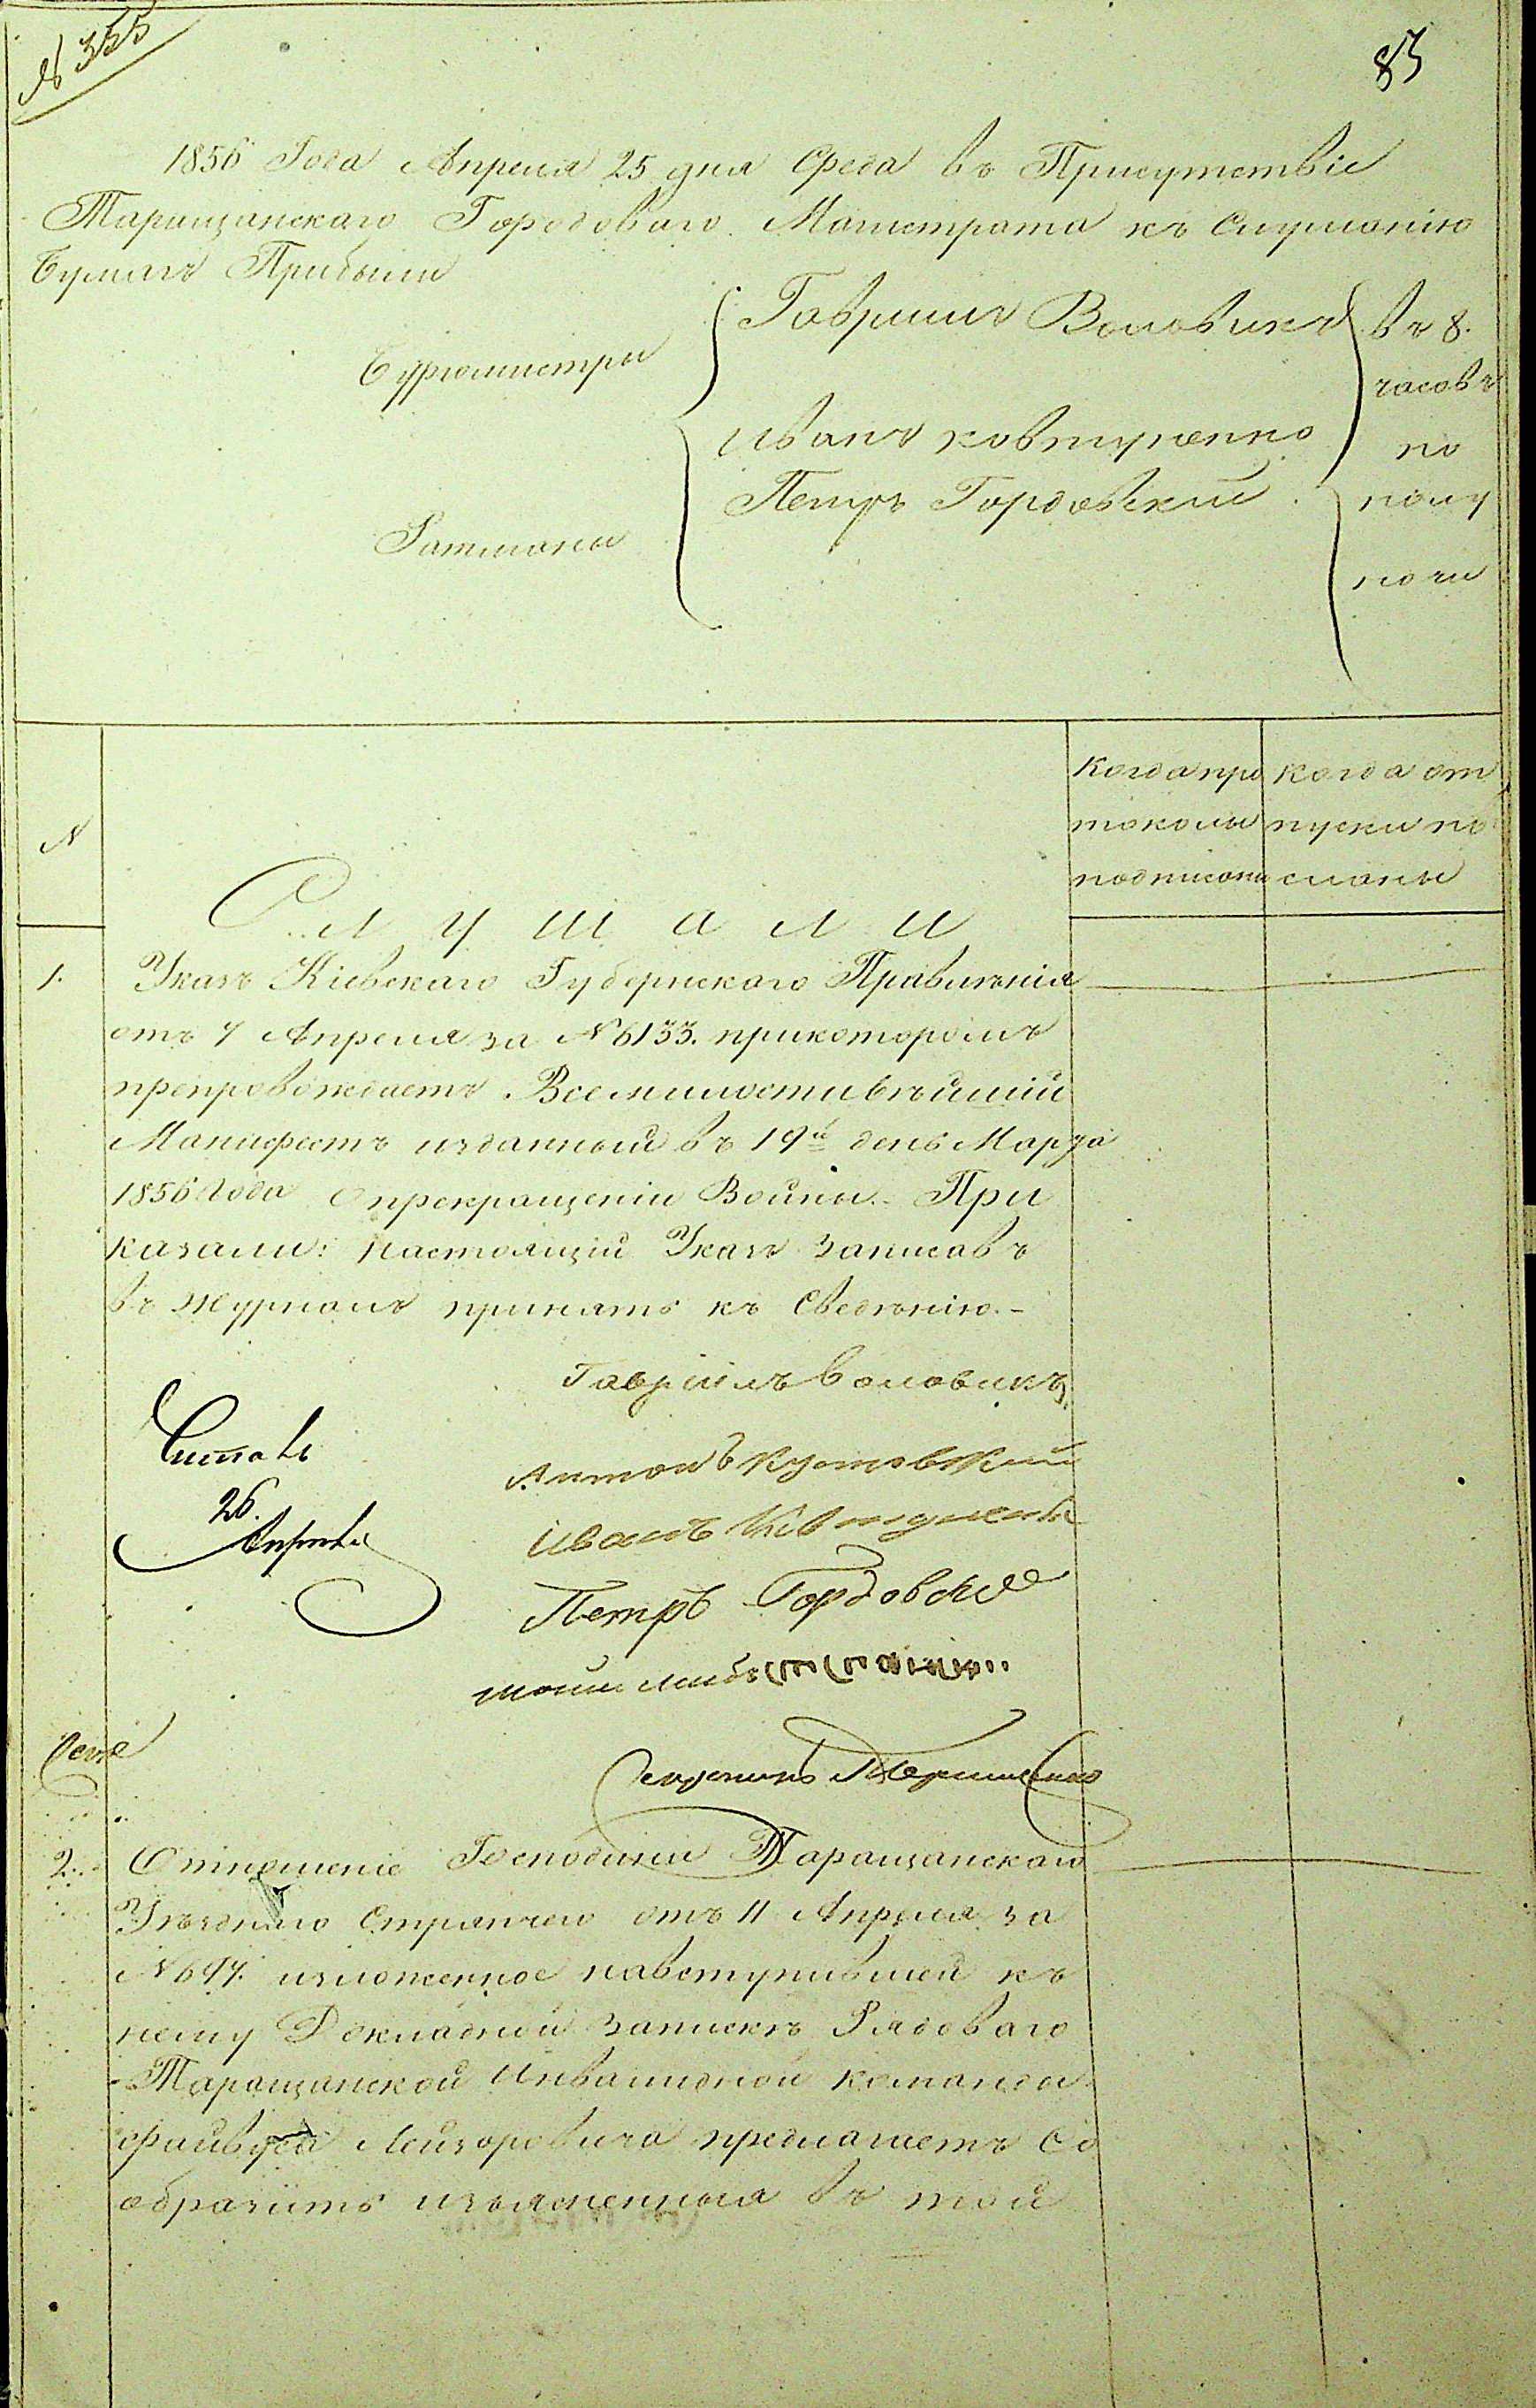 № 355
83
1856 Года Апреля 25 дня Среда въ Присутствіе
Таращанскаго Городоваго Магистрата къ Слушанію
Бумагъ Прибыли
Бургомистры
Гавриилъ Воловикъ
Иванъ Ковтуненко
Ратманы
Петръ Гордовский
въ 8.
часовъ
по
полу
ночи
N
Слушали
Когда про
токолы
подписаны
Когда от
пуски по
сланы
1.
Указъ Кіевскаго Губернскаго Правленія
отъ 7 Апреля за N 6133. прикоторомъ
препровождаетъ Всемилостивѣйшій
Манифестъ изданный въ 19й день Марта
1856 Года опрекращеніи Войны. При
казали: Настоящій Указъ Записавъ
въ журналъ принять къ Сведѣнію.-
Гавріилъ Воловикъ
Читалъ
26.
Апреля
Антонъ Кутовский
Иванъ Ковтуненко
Петръ Гордовский
Секретарь
2.
Отношеніе Господина Таращанскаго
Уѣзднаго Стряпчего отъ 11 Апреля за
N 697. изложенное навступившей къ
нему Докладной Запискѣ Рядоваго
Таращанской Инвалидной команды
Файвуса Лейзоровича предлагаетъ Со
образить изъясненныя въ той